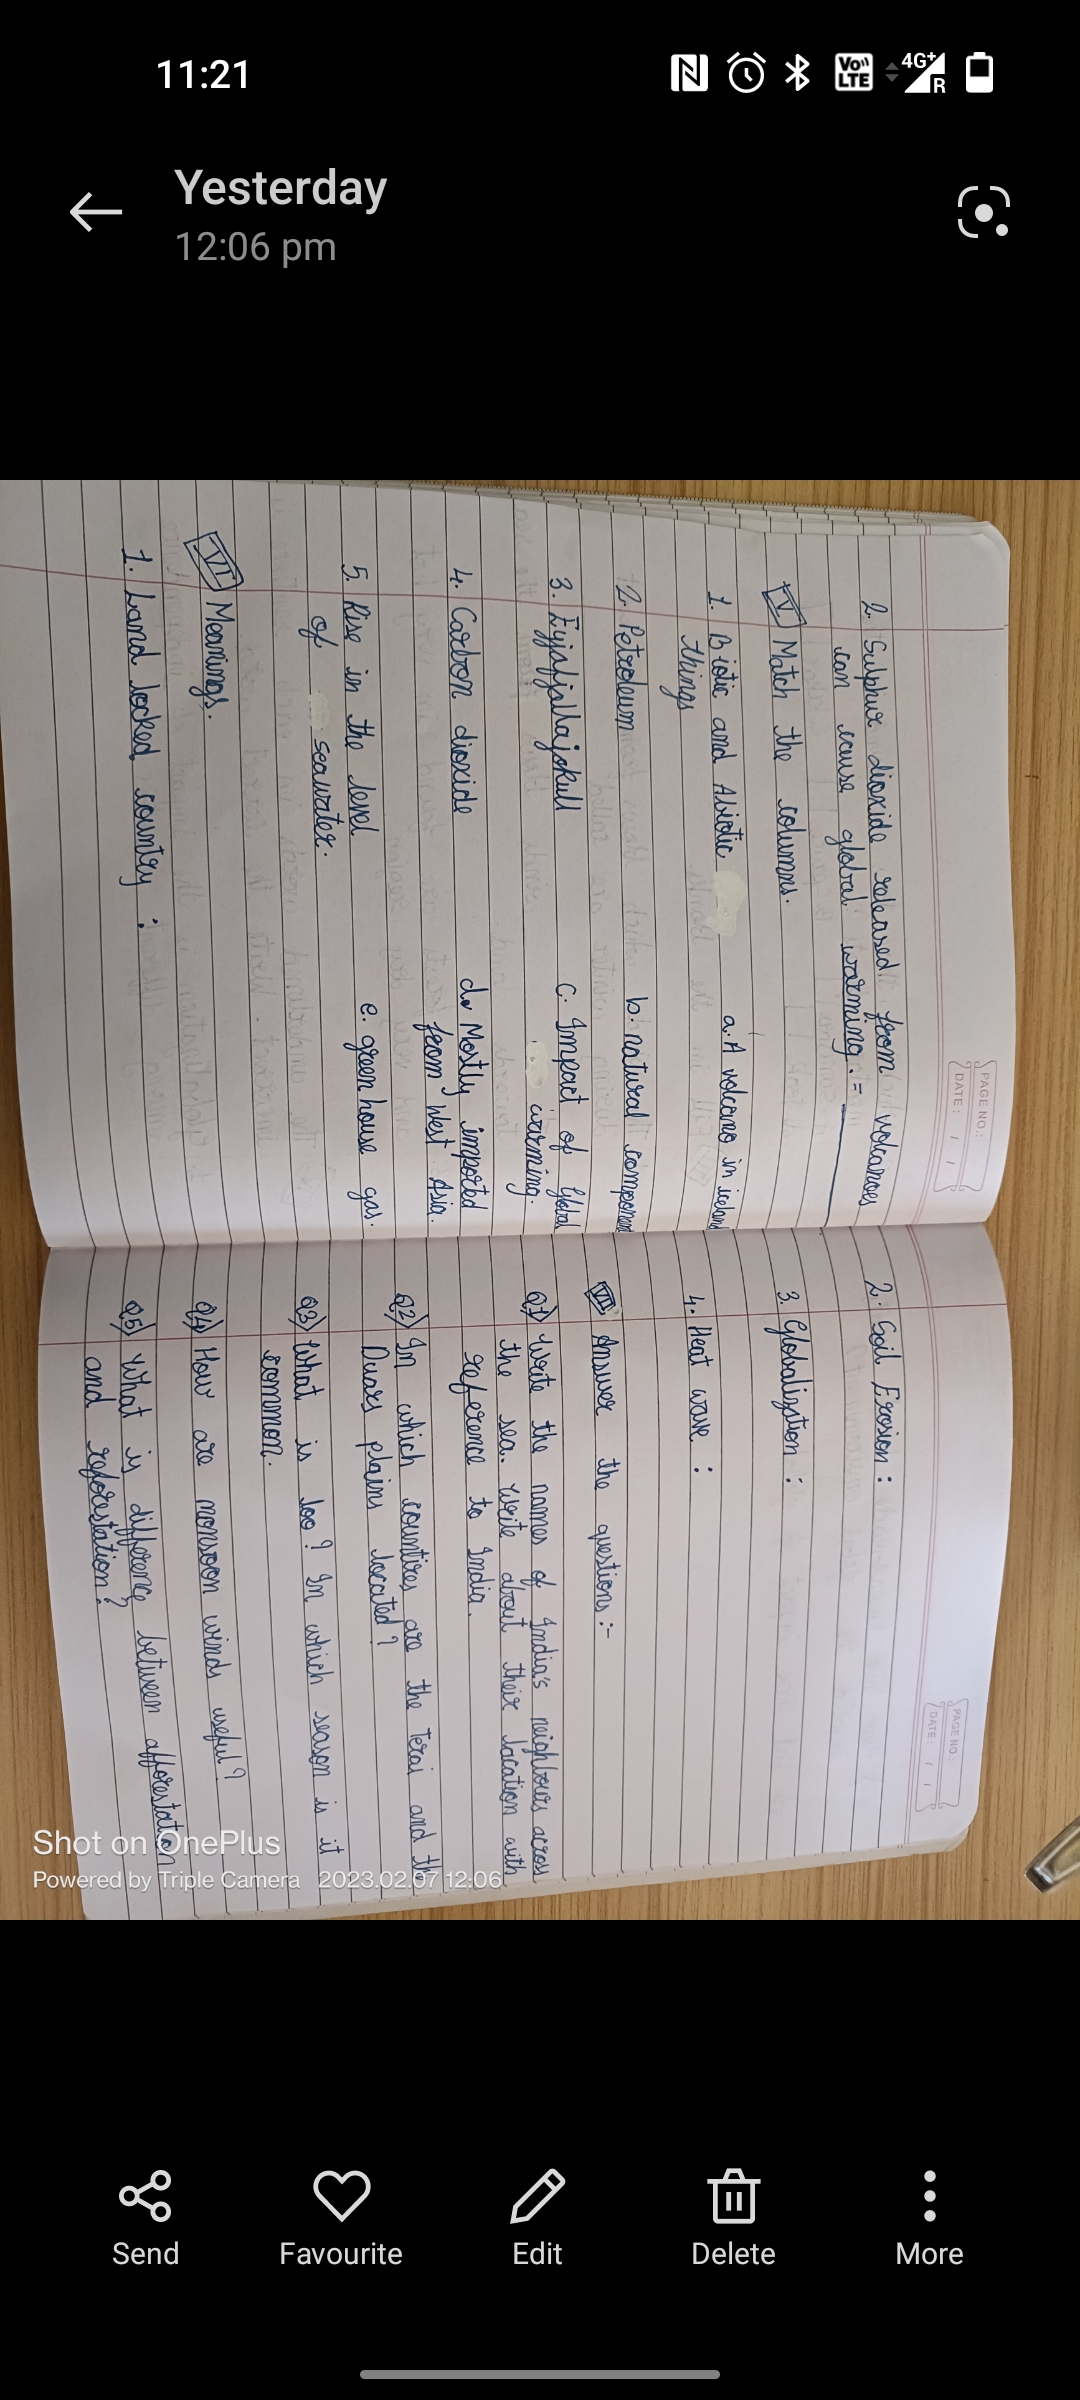 11:21
Yesterday
12:06 pm
PAGE NO.:
DATE: / /
2. Sulphur dioxide released from volcanoes
can cause global warming. =
V Match the columns.
1. Biotic and Abiotic a. A volcano in iceland
things
2. Petroleum b. natural component
3. Eyjafjallajokull c. Impact of Global
warming.
4. Carbon dioxide d. Mostly imported
from West Asia.
5. Rise in the level e. green house gas.
of seawater.
VI Meanings.
1. Land locked country :
PAGE NO.:
DATE: / /
2. Soil Erosion :
3. Globaliztion :
4. Heat wave :
VII Answer the questions :-
Q1) Write the names of India's neighbours across
the sea. Write about their location with
reference to India.
Q2) In which countires are the terai and th
Duars plains located?
Q3) What is loo? In which season is it
common.
Q4) How are monsoon winds useful?
Q5) What is difference between afforestation
and reforestation?
Shot on OnePlus
Powered by Triple Camera 2023.02.07 12:06
Send
Favourite
Edit
Delete
More